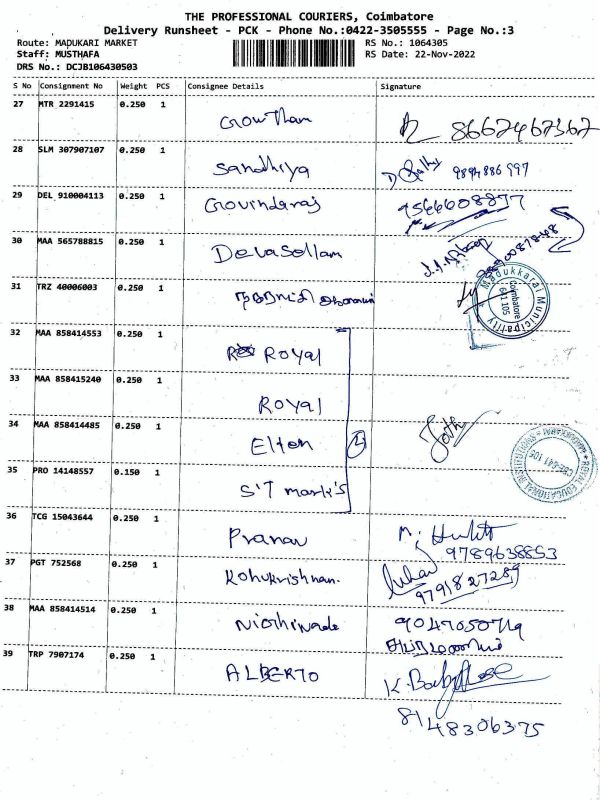 THE PROFESSIONAL COURIERS, Coimbatore
Delivery Runsheet - PCK - Phone No.:0422-3505555 - Page No.:3
Route: MADUKARI MARKET RS No.: 1064305
Staff: MUSTHAFA RS Date: 22-Nov-2022
DRS No.: DCJB106430503
S No Consignment No Weight PCS Consignee Details Signature
27 MTR 2291415 0.250 1 Gowtham 8667467367
28 SLM 307907107 0.250 1 Sandhiya 9894886997
29 DEL 910004113 0.250 1 Govindaraj 9566608877
30 MAA 565788815 0.250 1 Devasollam
31 TRZ 40006003 0.250 1
Madukkarai Municipality
Coimbatore
641 105
32 MAA 858414553 0.250 1 Royal
33 MAA 858415240 0.250 1 Royal
34 MAA 858414485 0.250 1 Elton
35 PRO 14148557 0.150 1 S'T mark's
36 TCG 15043644 0.250 1 Pranav
9789638853
37 PGT 752568 0.250 1
9791827289
38 MAA 858414514 0.250 1 9047050719
39 TRP 7907174 0.250 1 ALBERTO
8148306375